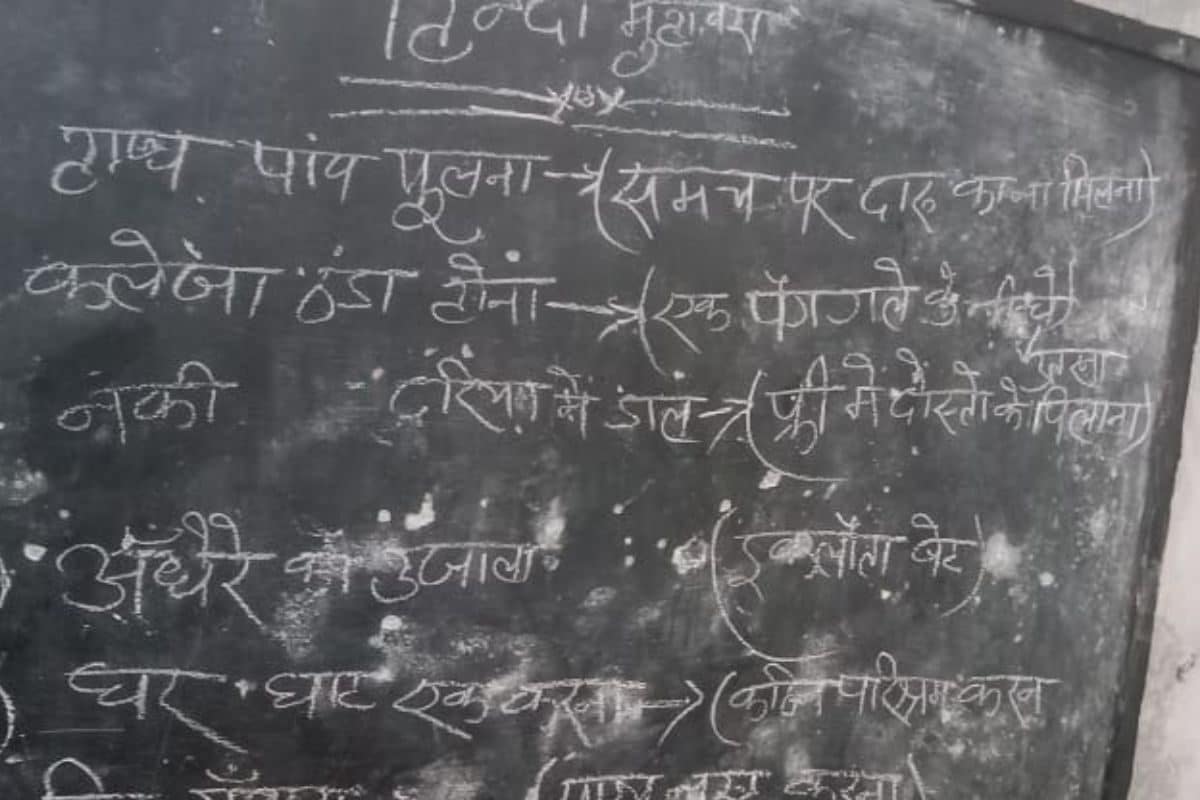 हिन्दी मुहावरा
हाथ पांव फूलना → (समय पर दारू का ना मिलना)
कलेजा ठंडा होना → (एक पेग गले के नीचे
नेकी दरिया में डाल → (फ्री में दोस्तो के पिलाना)
अँधेरे का उजाला (इकलौता बेटा)
घर घाट एक करना → (कठिन परिश्रम करन